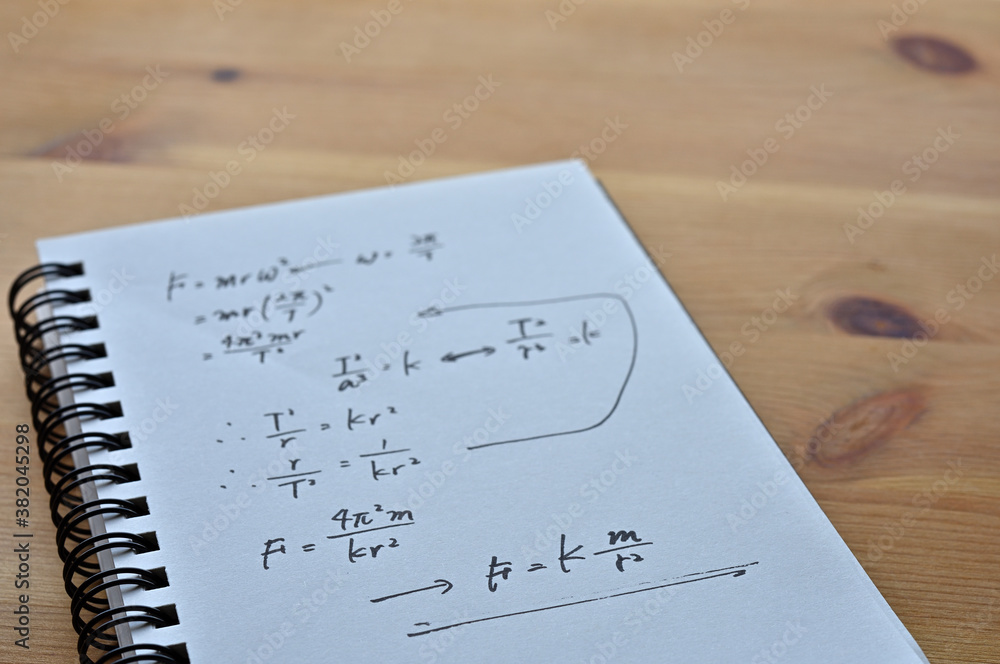 F = mrω² ← ω = 2π/T
= mr(2π/T)²
= 4π²mr/T²
T²/a³ = k ↔ T²/r³ = k
∴ T²/r = kr²
∴ r/T² = 1/kr²
F = 4π²m/kr²
→ F = k m/r²
Adobe Stock | #382045298